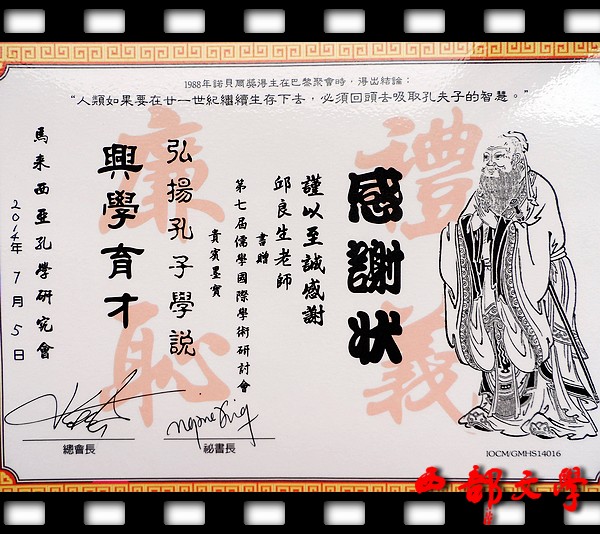 1988年諾貝爾獎得主在巴黎聚會時，得出結論：
“人類如果要在廿一世紀繼續生存下去，必須回頭去吸取孔夫子的智慧。”
禮義
廉恥
感謝狀
謹以至誠感謝
邱良生老師
書贈
第七届儒學國際學術研討會
貴賓墨寶
弘揚孔子學説
興學育才
馬來西亞孔學研究會
2014年7月5日
總會長
祕書長
IOCM/GMHS14016
西部文學